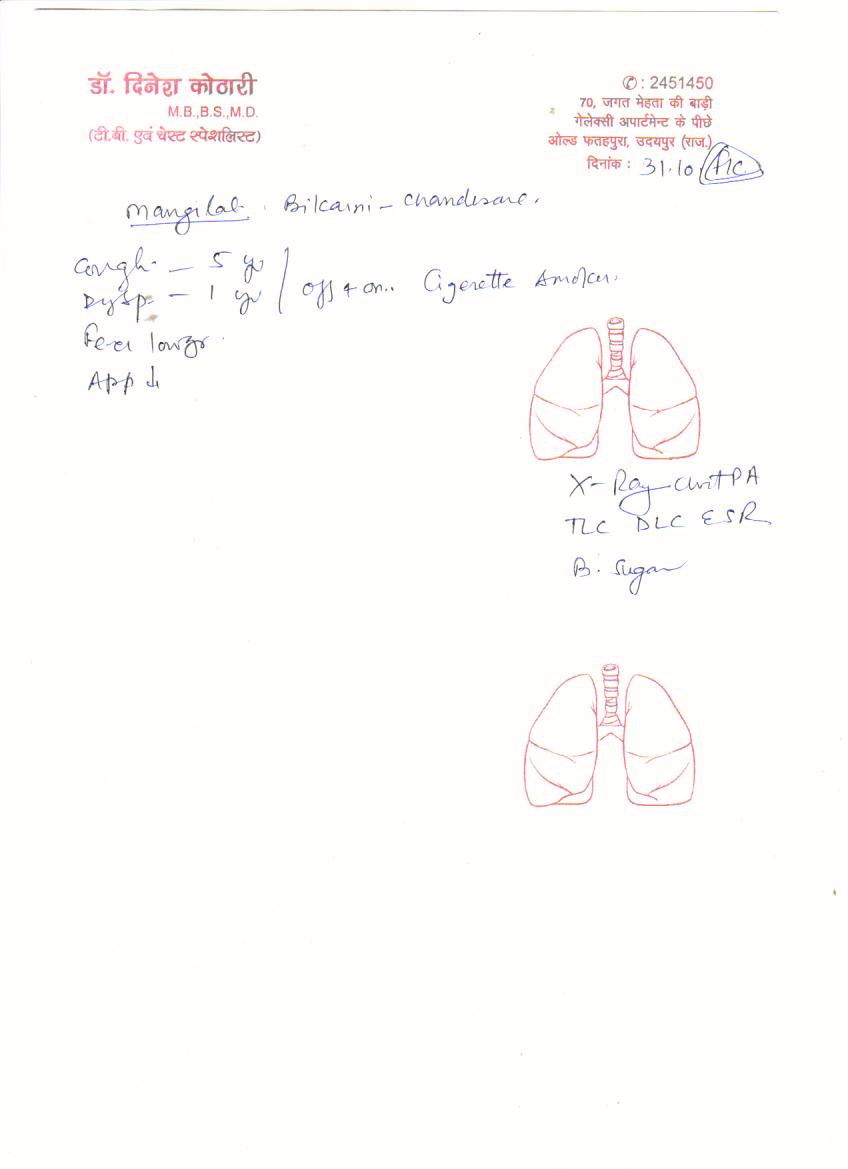 डॉ. दिनेश कोठारी
M.B.,B.S.,M.D.
(टी.बी. एवं चेस्ट स्पेशलिस्ट)
✆ : 2451450
70, जगत मेहता की बाड़ी
गेलेक्सी अपार्टमेन्ट के पीछे
ओल्ड फतहपुरा, उदयपुर (राज.)
दिनांक : 31.10
Mangilal.
Cough. — 5 yr
Dysp. — 1 yr / off + on.. Cigerette Smoker.
Fever low gr.
App ↓
X-Ray Chest PA
TLC DLC ESR
B. Sugar